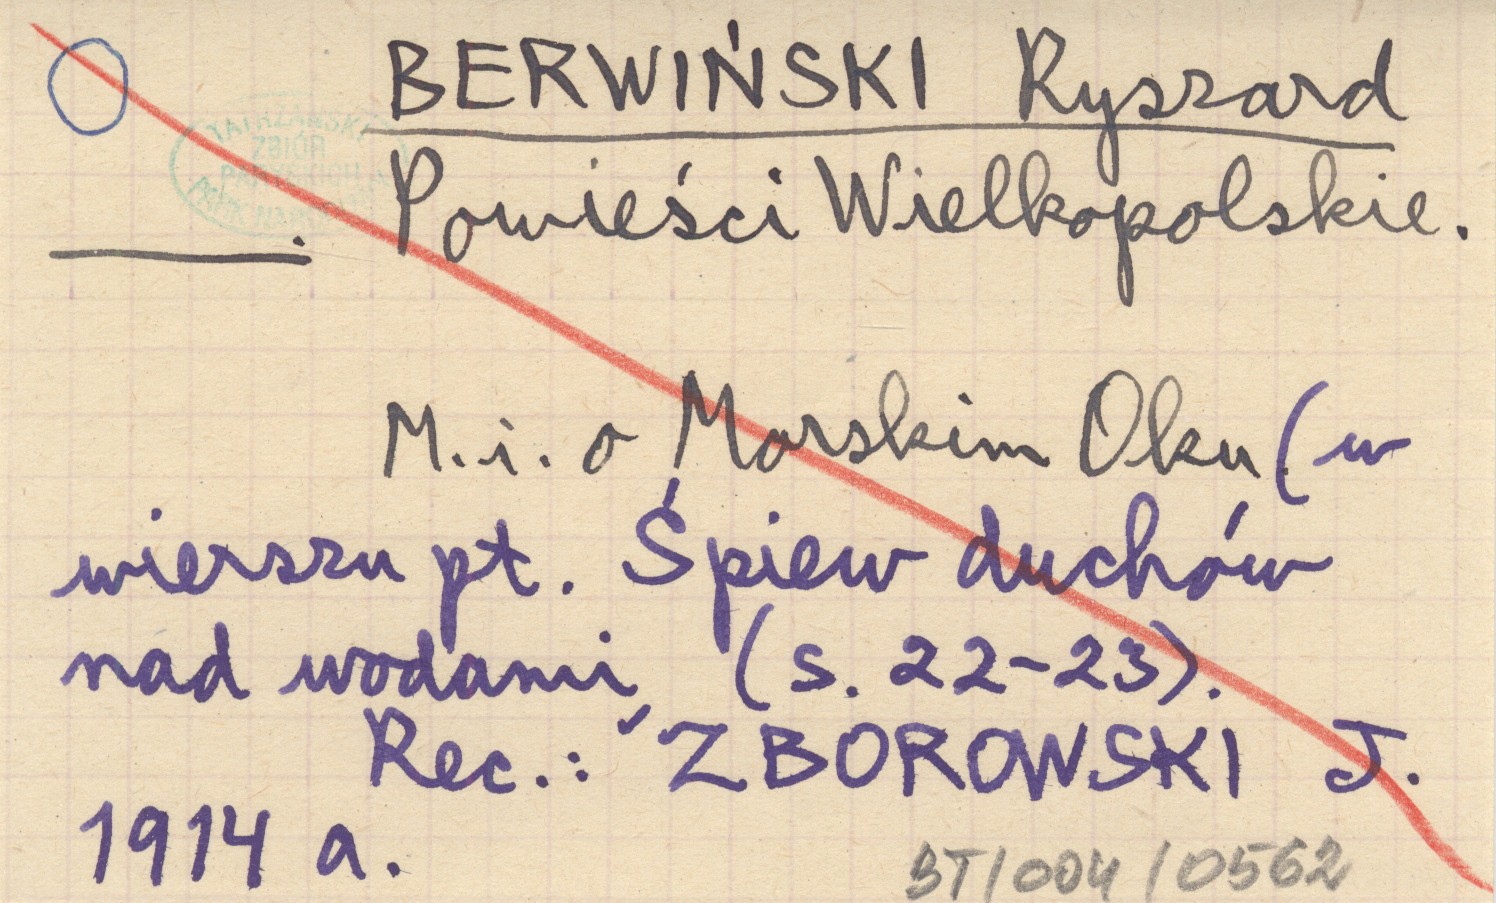 BERWIŃSKI Ryszard
TATRZAŃSKI
ZBIÓR
PARK
Powieści Wielkopolskie.
M. i. o Morskim Oku (w
wierszu pt. Śpiew duchów
nad wodami (s. 22-23).
Rec.: ZBOROWSKI J.
1914 a.
BT/004/0562